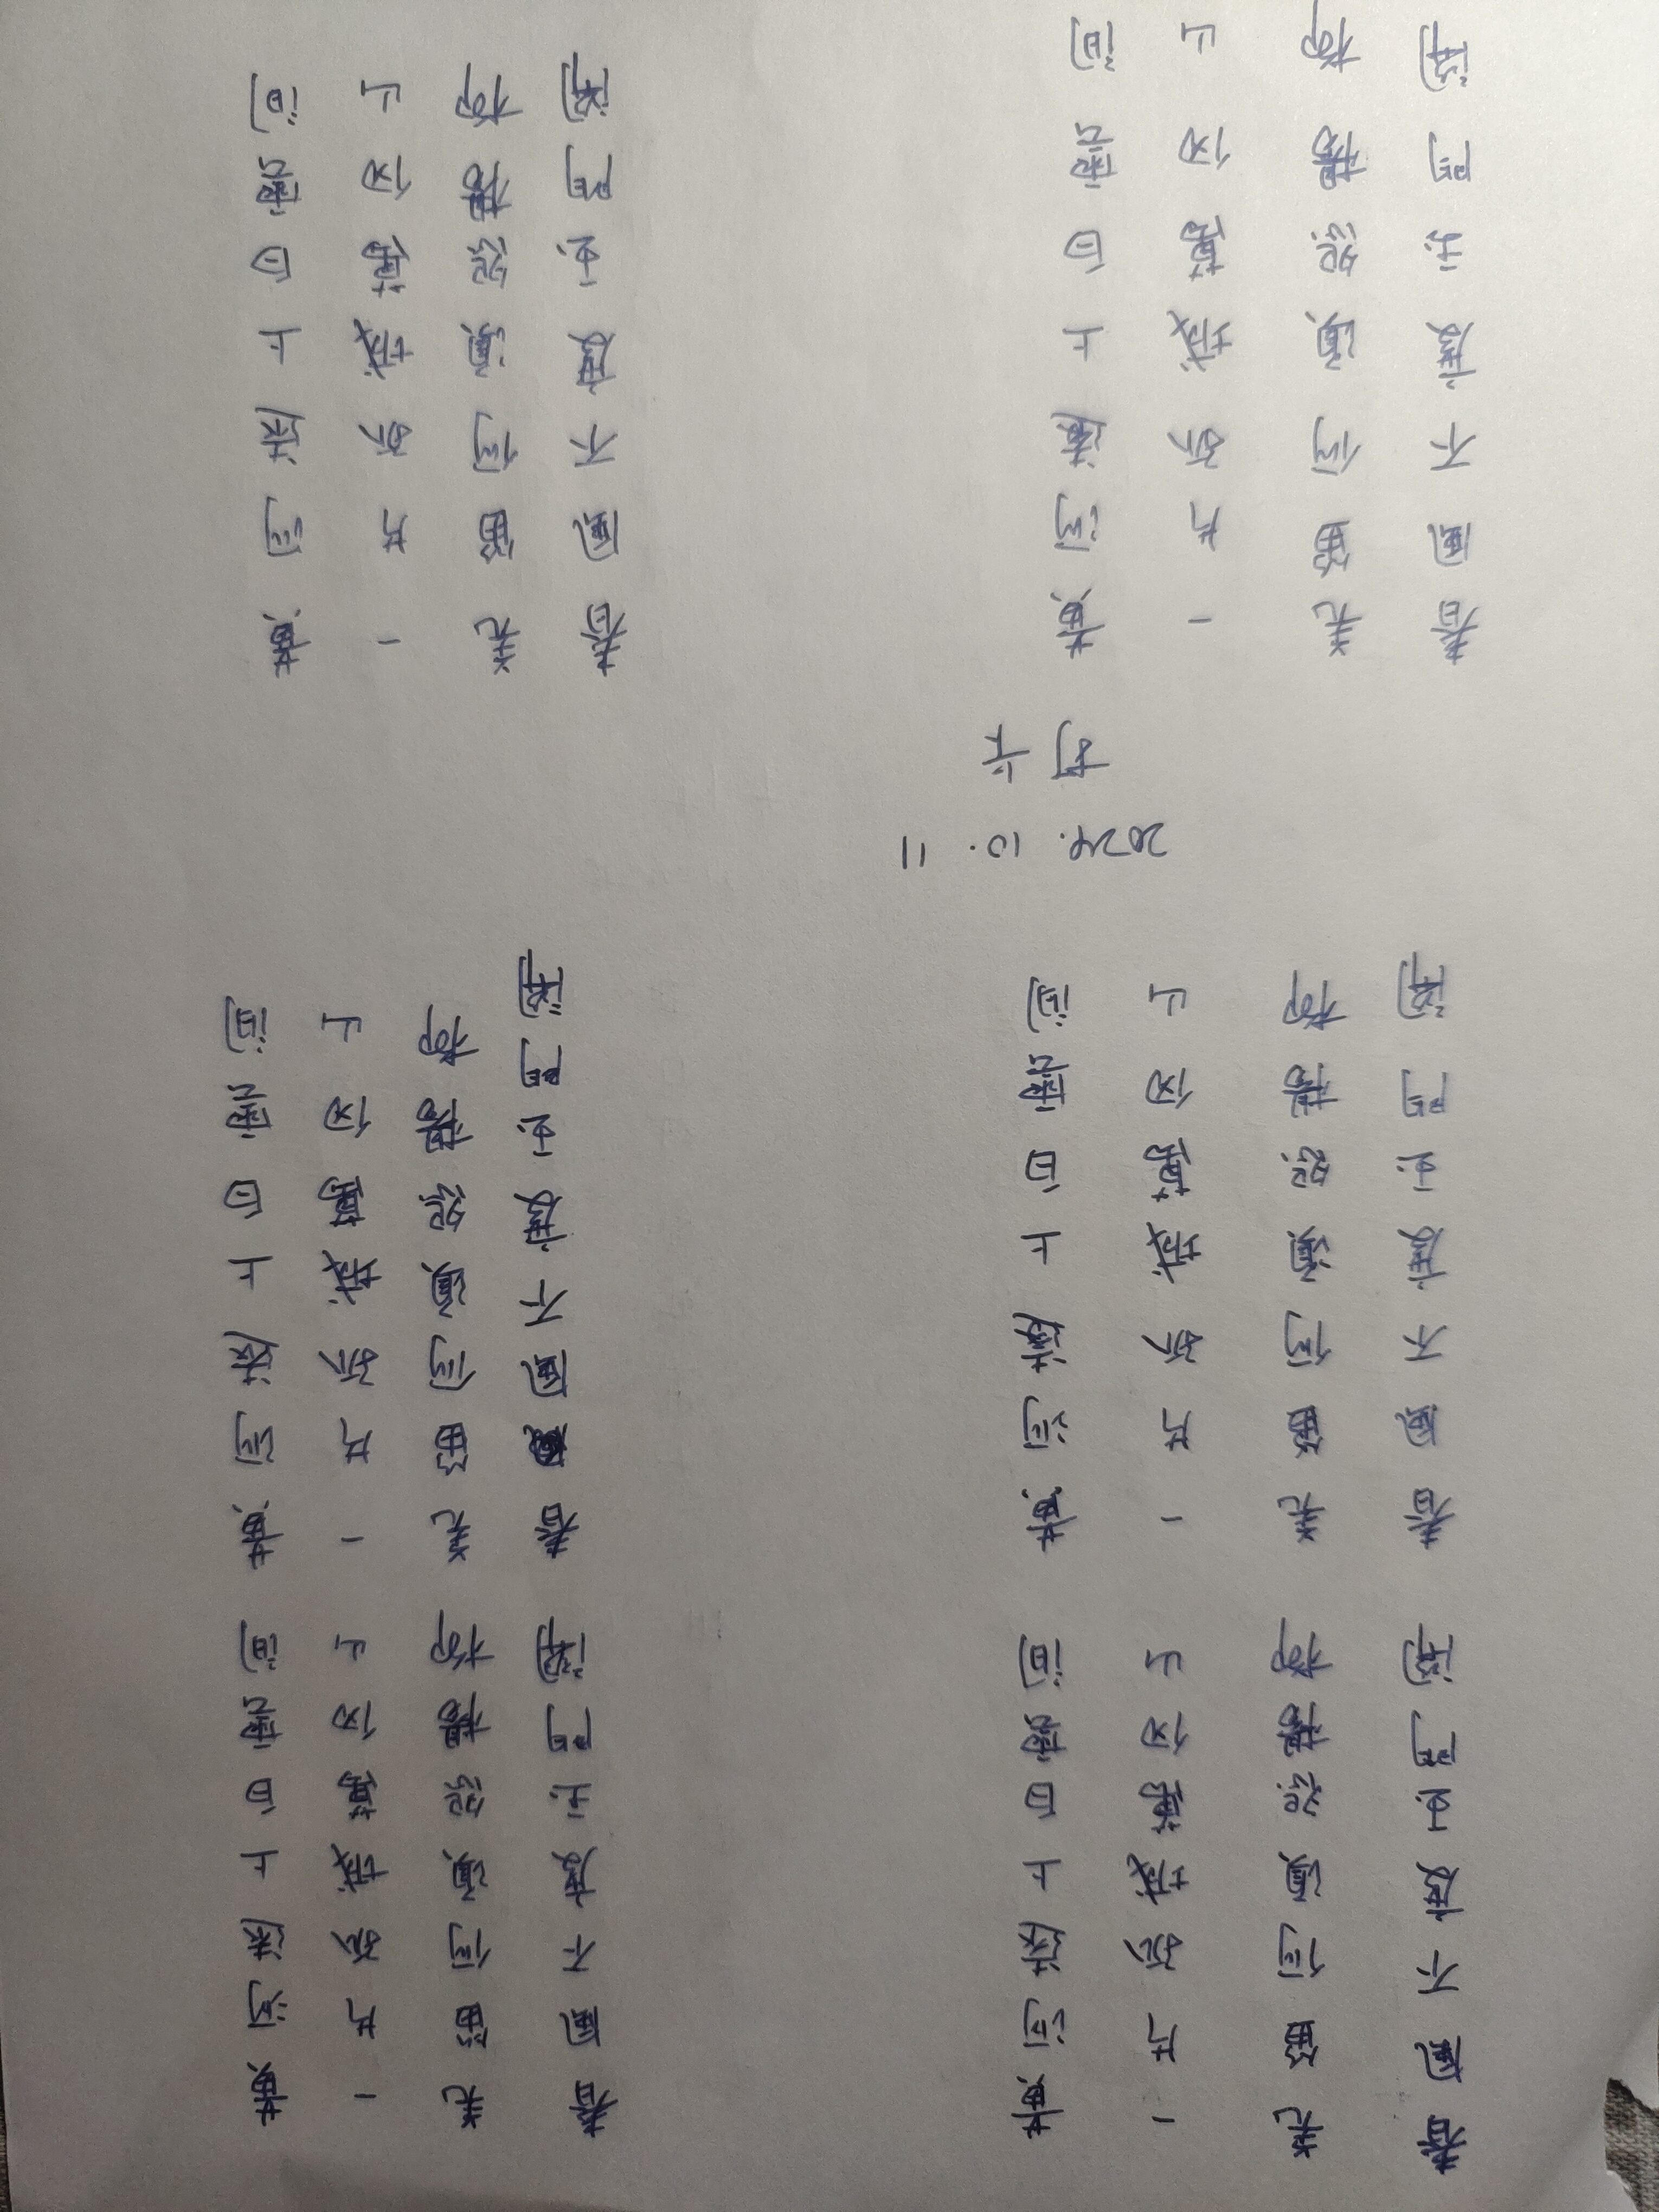 黃河遠上白雲間
一片孤城萬仞山
羌笛何須怨楊柳
春風不度玉門關
黃河遠上白雲間
一片孤城萬仞山
羌笛何須怨楊柳
春風不度玉門關
黃河遠上白雲間
一片孤城萬仞山
羌笛何須怨楊柳
春風不度玉門關
黃河遠上白雲間
一片孤城萬仞山
羌笛何須怨楊柳
春風不度玉門關
2024.10.11
打卡
黃河遠上白雲間
一片孤城萬仞山
羌笛何須怨楊柳
春風不度玉門關
黃河遠上白雲間
一片孤城萬仞山
羌笛何須怨楊柳
春風不度玉門關